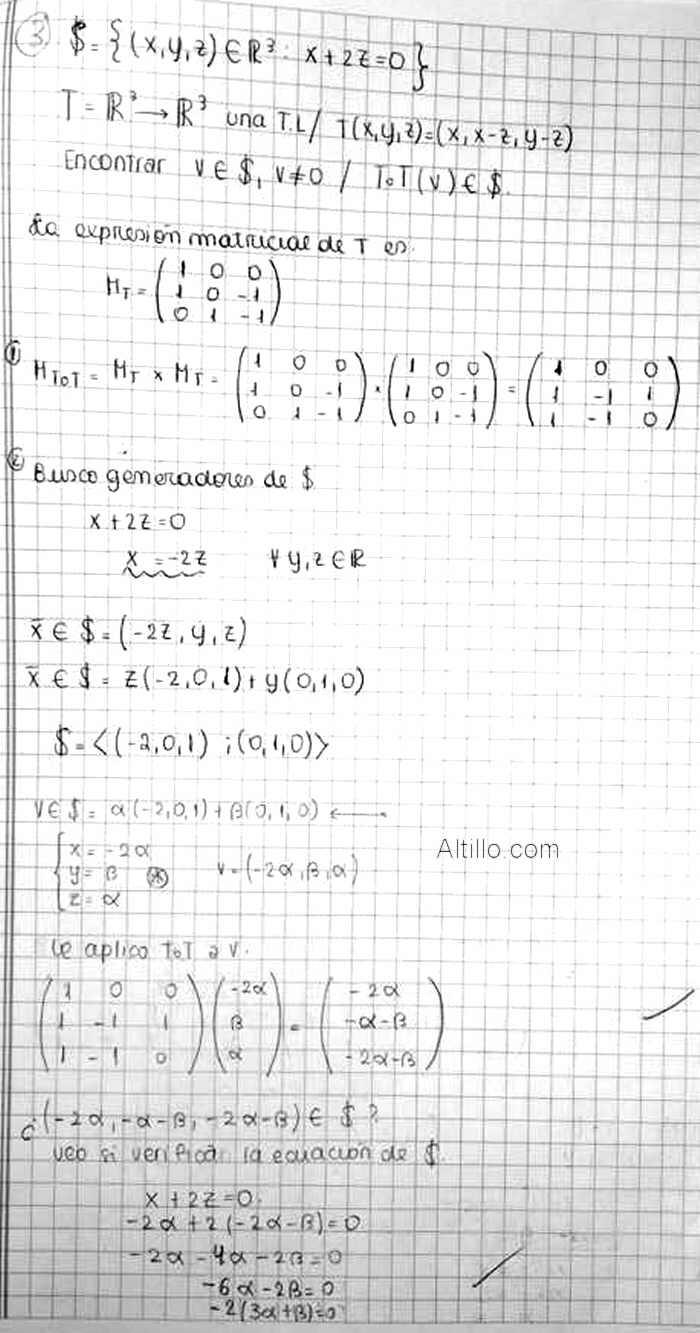 ③ $ = {(x,y,z) ∈ ℝ³ : x+2z=0}
T = ℝ³ → ℝ³ una T.L / T(x,y,z)=(x, x-z, y-z)
Encontrar v ∈ $, v≠0 / T∘T(v) ∈ $.
La expresión matricial de T es.
M_T = (1 0 0 / 1 0 -1 / 0 1 -1)
① M_T∘T = M_T × M_T = (1 0 0 / 1 0 -1 / 0 1 -1) · (1 0 0 / 1 0 -1 / 0 1 -1) = (1 0 0 / 1 -1 1 / 1 -1 0)
② Busco generadores de $
x+2z=0
x = -2z ∀ y,z ∈ ℝ
x̄ ∈ $ = (-2z, y, z)
x̄ ∈ $ = z(-2,0,1) + y(0,1,0)
$ = <(-2,0,1) ; (0,1,0)>
v ∈ $ = α(-2,0,1) + β(0,1,0) ←
Altillo.com
{ x = -2α
y = β ⊛ v = (-2α, β, α)
z = α
Le aplico T∘T a v.
(1 0 0 / 1 -1 1 / 1 -1 0) (-2α / β / α) = (-2α / -α-β / -2α-β)
¿(-2α, -α-β, -2α-β) ∈ $ ?
veo si verifica la ecuación de $.
x+2z=0.
-2α+2(-2α-β)=0
-2α-4α-2β=0
-6α-2β=0
-2(3α+β)=0